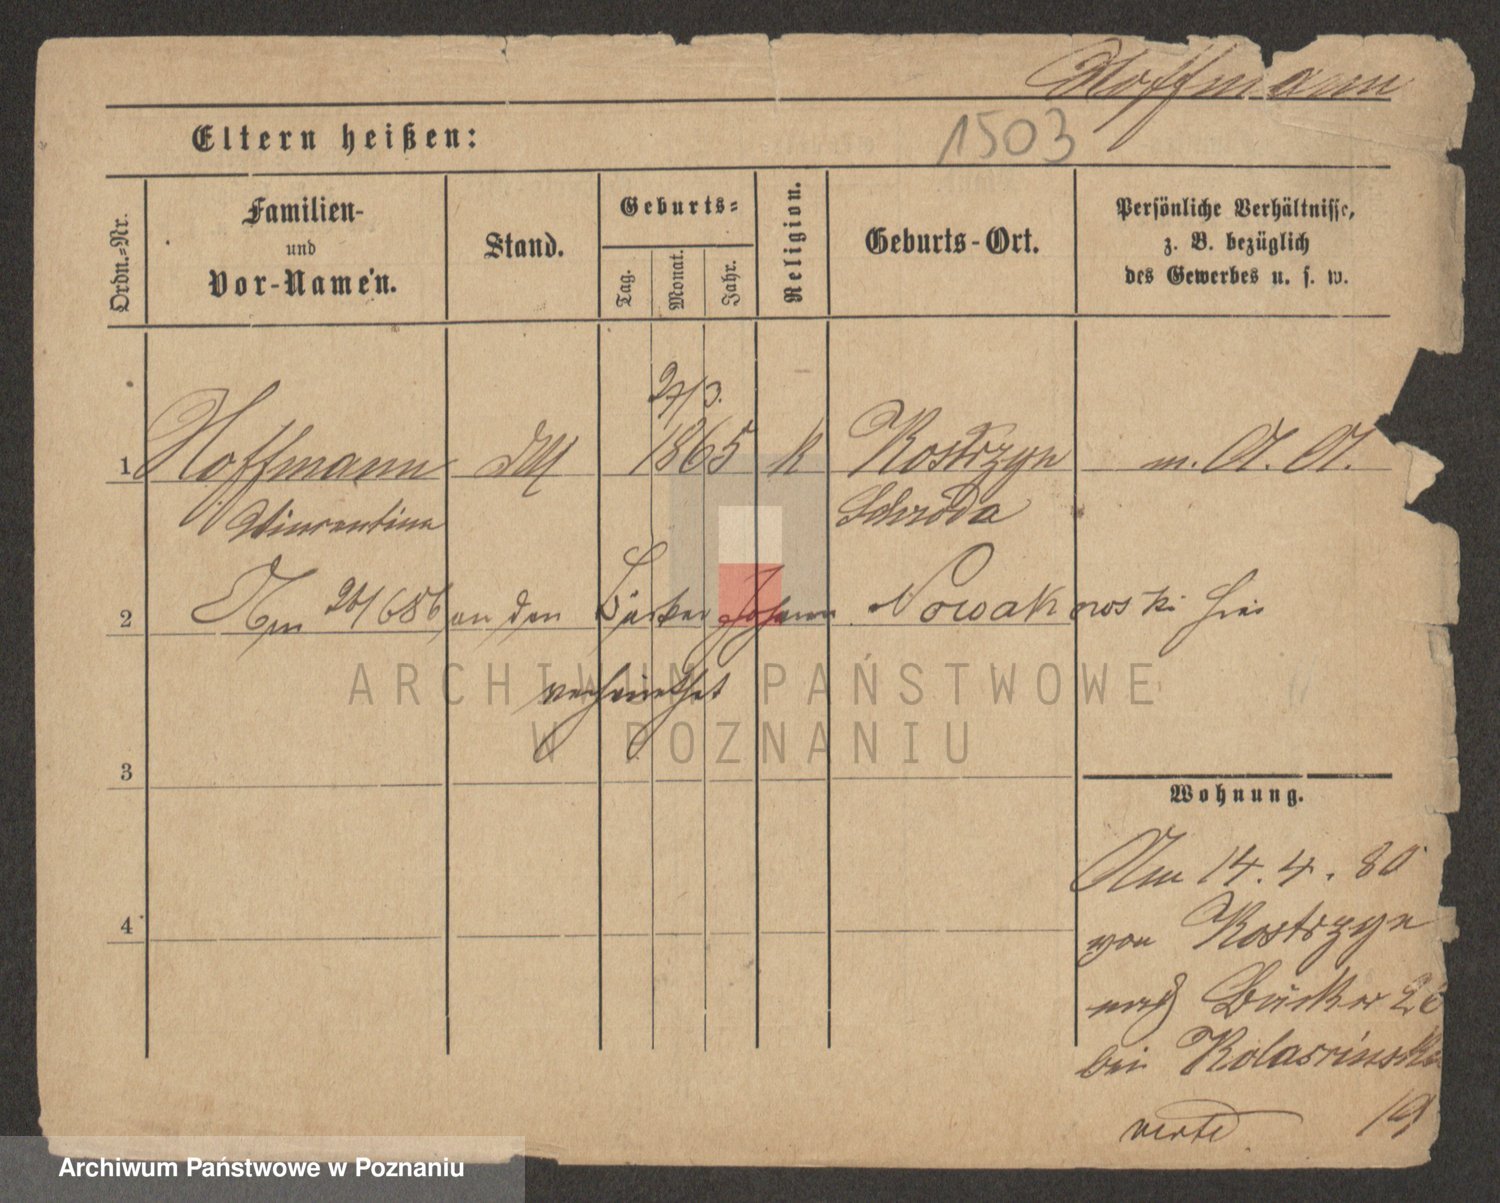 Hoffmann
1503
Eltern heißen:
Ordn.-Nr.
Familien-
und
Vor-Namen.
Stand.
Geburts-
Tag.
Monat.
Jahr.
Religion.
Geburts-Ort.
Persönliche Verhältnisse,
z. B. bezüglich
des Gewerbes u. s. w.
27/3.
1 Hoffmann 1865 k Kostrzyn m. A. A.
Vincentina Schroda
2 Am 26/6 86 an den Bäcker Johann Nowakowski hier
verheirathet
3
Wohnung.
4
Am 14.4.80
von Kostrzyn
nach Bäcker
bei
verte 19
ARCHIWUM PAŃSTWOWE
W POZNANIU
Archiwum Państwowe w Poznaniu